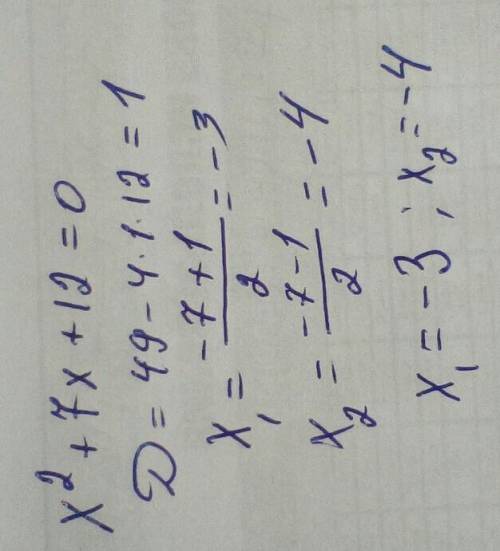 x² + 7x + 12 = 0
D = 49 - 4·1·12 = 1
x₁ = (-7+1)/2 = -3
x₂ = (-7-1)/2 = -4
x₁ = -3 ; x₂ = -4